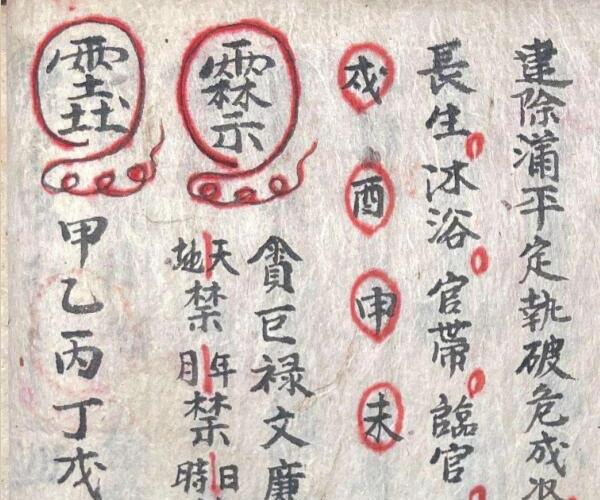 建除滿平定執破危成
長生沐浴官帶臨官
戌酉申未
貪巨禄文廉
天年日
禁禁
地月時
甲乙丙丁戊